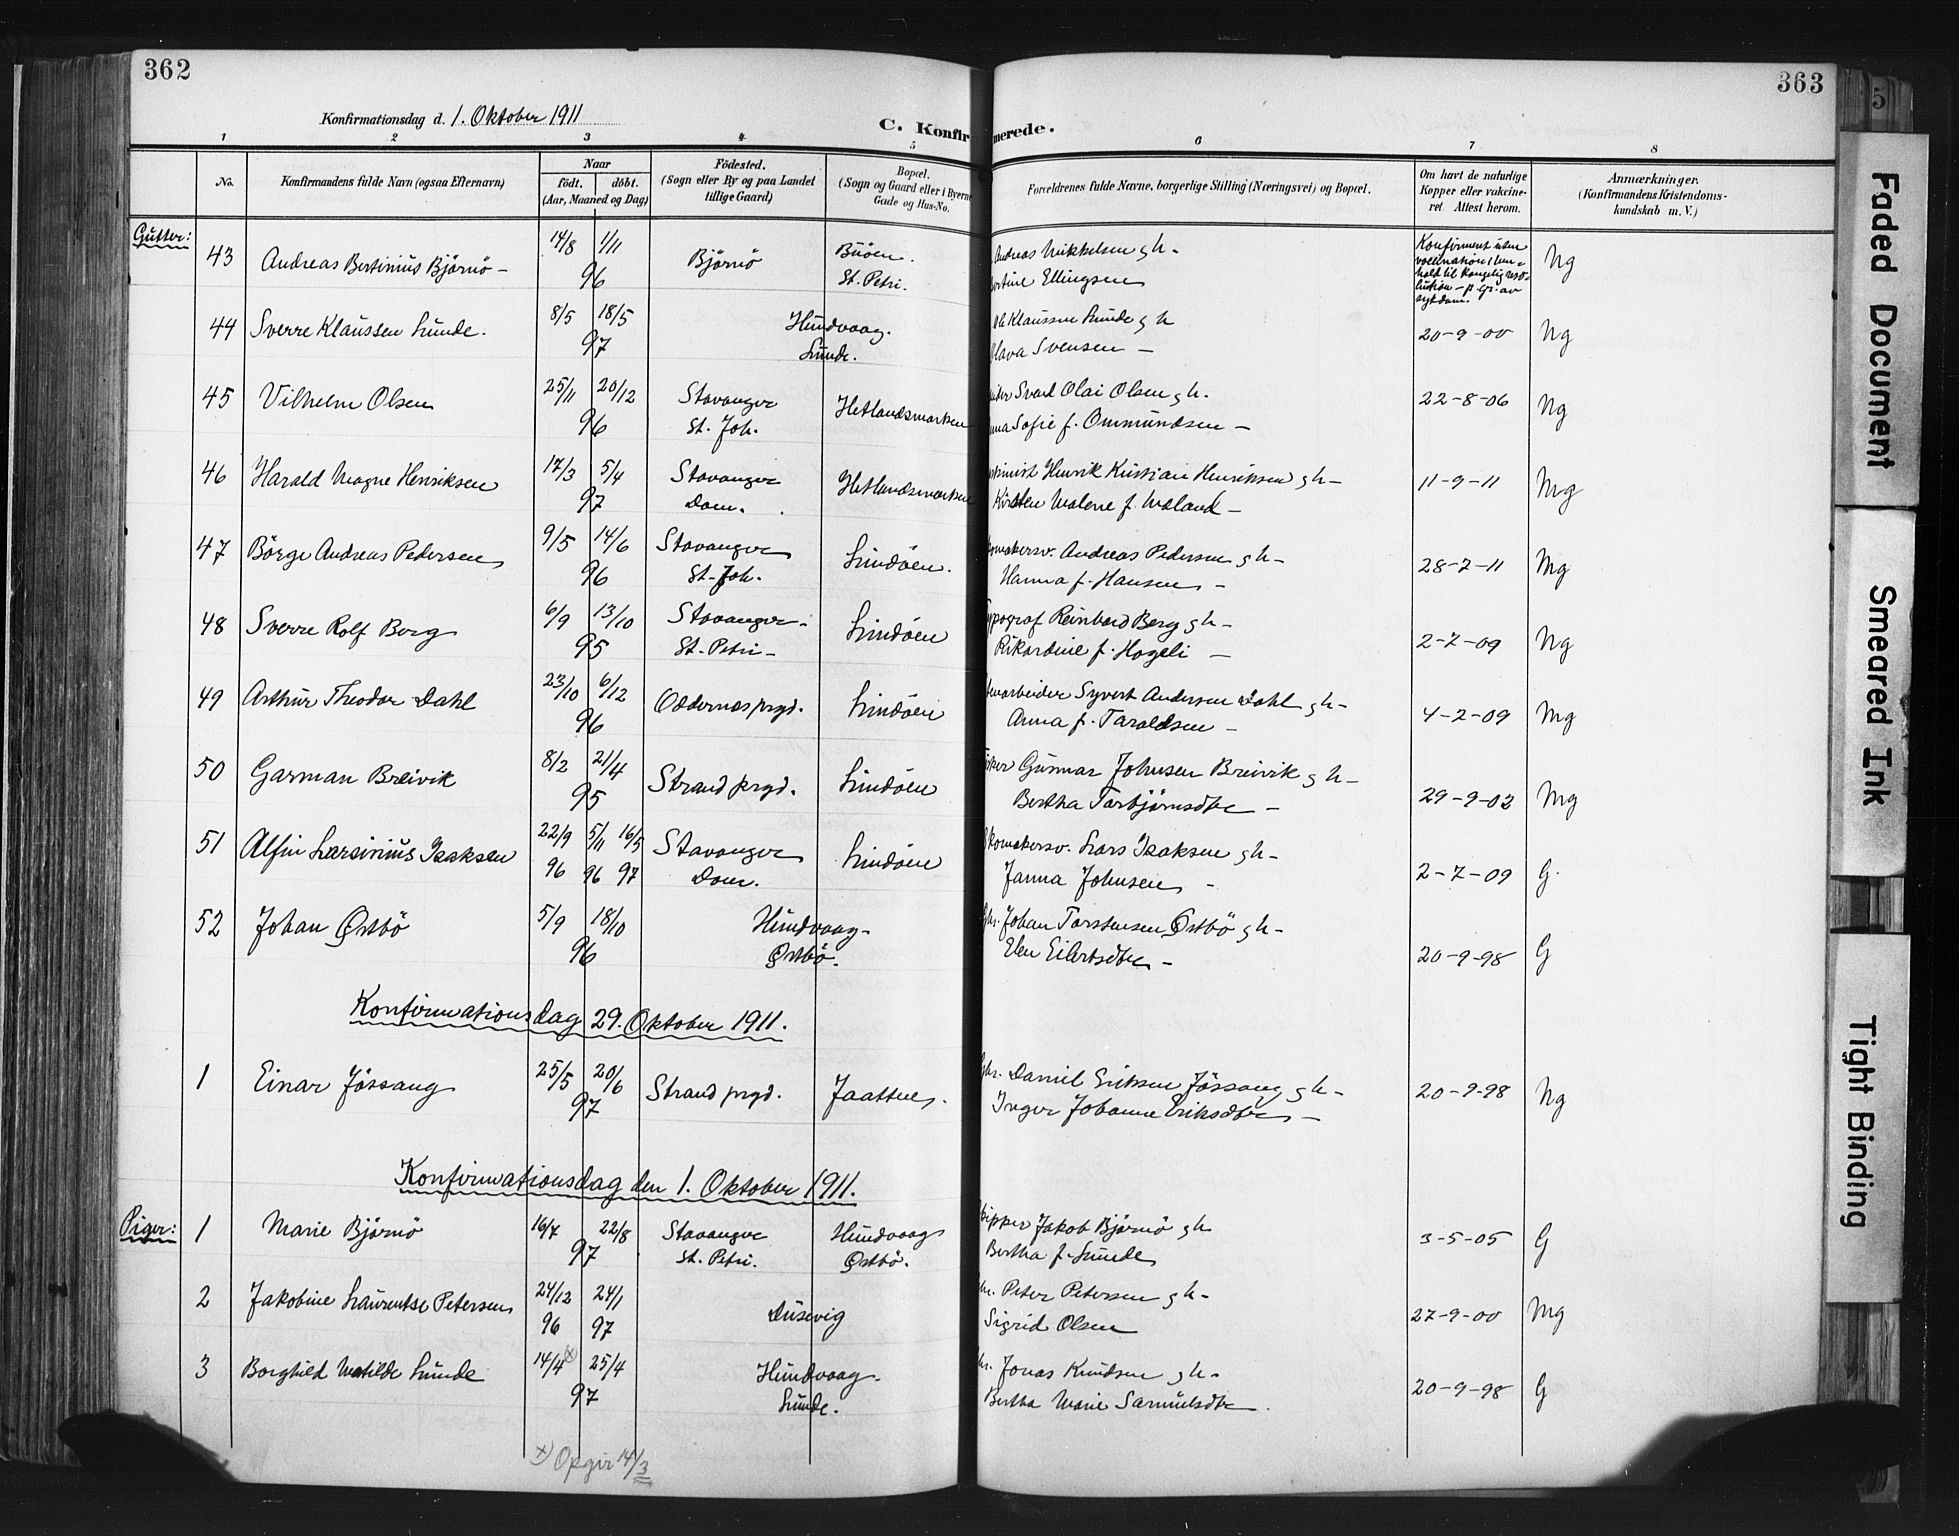 362
363
5
Konfirmationsdag d. 1. Oktober 1911
C. Konfirmerede.
1 2 3 4 5 6 7 8
No.
Konfirmandens fulde Navn (ogsaa Efternavn)
Naar
født. døbt.
(Aar, Maaned og Dag)
Fødested.
(Sogn eller By og paa Landet
tillige Gaard)
Bopæl.
(Sogn og Gaard eller i Byerne
Gade og Hus-No.
Forældrenes fulde Navne, borgerlige Stilling (Næringsvei) og Bopæl.
Om havt de naturlige
Kopper eller vakcine-
ret. Attest herom.
Anmærkninger.
(Konfirmandens Kristendoms-
kundskab m. V.)
Gutter:
43 Andreas Bertinius Bjørnø - 14/8 1/11 96 Bjørnø Buøen. St. Petri.
Andreas Mikkelsen g h -
Ellingsen
Konfirmert uten
vaccination i hen-
hold til kongelig reso-
lution - p. gr. av
sykdom.
Mg
44 Sverre Klaussen Lunde. 8/5 18/5 97 Hundvaag. Lunde.
Ole Klaussen Lunde g h
Olava Svensen -
20-9-00 Mg
45 Vilhelm Olsen 25/11 20/12 96 Stavanger St. Joh. Hetlandsmarken
Svard Olai Olsen g h.
Sofie f. Ommundsen -
22-8-06 Mg
46 Harald Magne Henriksen 17/3 5/4 97 Stavanger Dom. Hetlandsmarken
Henrik Kristian Henriksen g h -
Kirsten Malene f. Maland -
11-9-11 Mg
47 Børge Andreas Pedersen 9/5 14/6 96 Stavanger St. Joh. Lindøen.
Skomakersv. Andreas Pedersen g h -
Hanna f. Hansen -
28-7-11 Mg
48 Sverre Rolf Berg 6/9 13/10 95 Stavanger. St. Petri - Lindøen
Typograf Reinhard Berg g h -
Rikardine f. Hogeli -
2-7-09 Mg
49 Arthur Theodor Dahl 23/10 6/12 96 Oddernes prgd. Lindøen
Syvert Andersen Dahl g h -
Anna f. Taraldsen -
4-2-09 Mg
50 Garman Breivik 8/2 21/4 95 Strand prgd. Lindøen
Gunnar Johnsen Breivik g h -
Bertha Torbjørnsdtr -
29-9-02 Mg
51 Alfin Larsinius Isaksen 22/9 96 5/11 96 16/5 97 Stavanger Dom. Lindøen
Skomakersv. Lars Isaksen g h -
Janna Johnsen -
2-7-09 G.
52 Johan Østbø 5/9 18/10 96 Hundvaag - Østbø.
Johan Torstensen Østbø g h -
Elen Eilertsdtr -
20-9-98 G
Konfirmationsdag 29. Oktober 1911.
1 Einar Jøssang 25/5 20/6 97 Strand prgd. Jaattnes.
Daniel Eriksen Jøssang g h -
Inger Johanne Eriksdtr -
20-9-98 Mg
Konfirmationsdag den 1. Oktober 1911.
Piger:
1 Marie Bjørnø 16/7 22/8 97 Stavanger St. Petri. Hundvaag Østbø.
Skipper Jakob Bjørnø g h
Bertha f. Lunde
3-5-05 G
2 Jakobine Laurentse Petersen 24/12 96 24/1 97 Dusevig
Peter Petersen g h -
Sigrid Olsen
27-9-00 Mg
3 Borghild Matilde Lunde 14/4 x) 25/4 97 Hundvaag. Lunde.
Jonas Knudsen g h -
Bertha Marie Samuelsdtr.
20-9-98 G
x) Opgir 14/3
Faded Document
Smeared Ink
Tight Binding